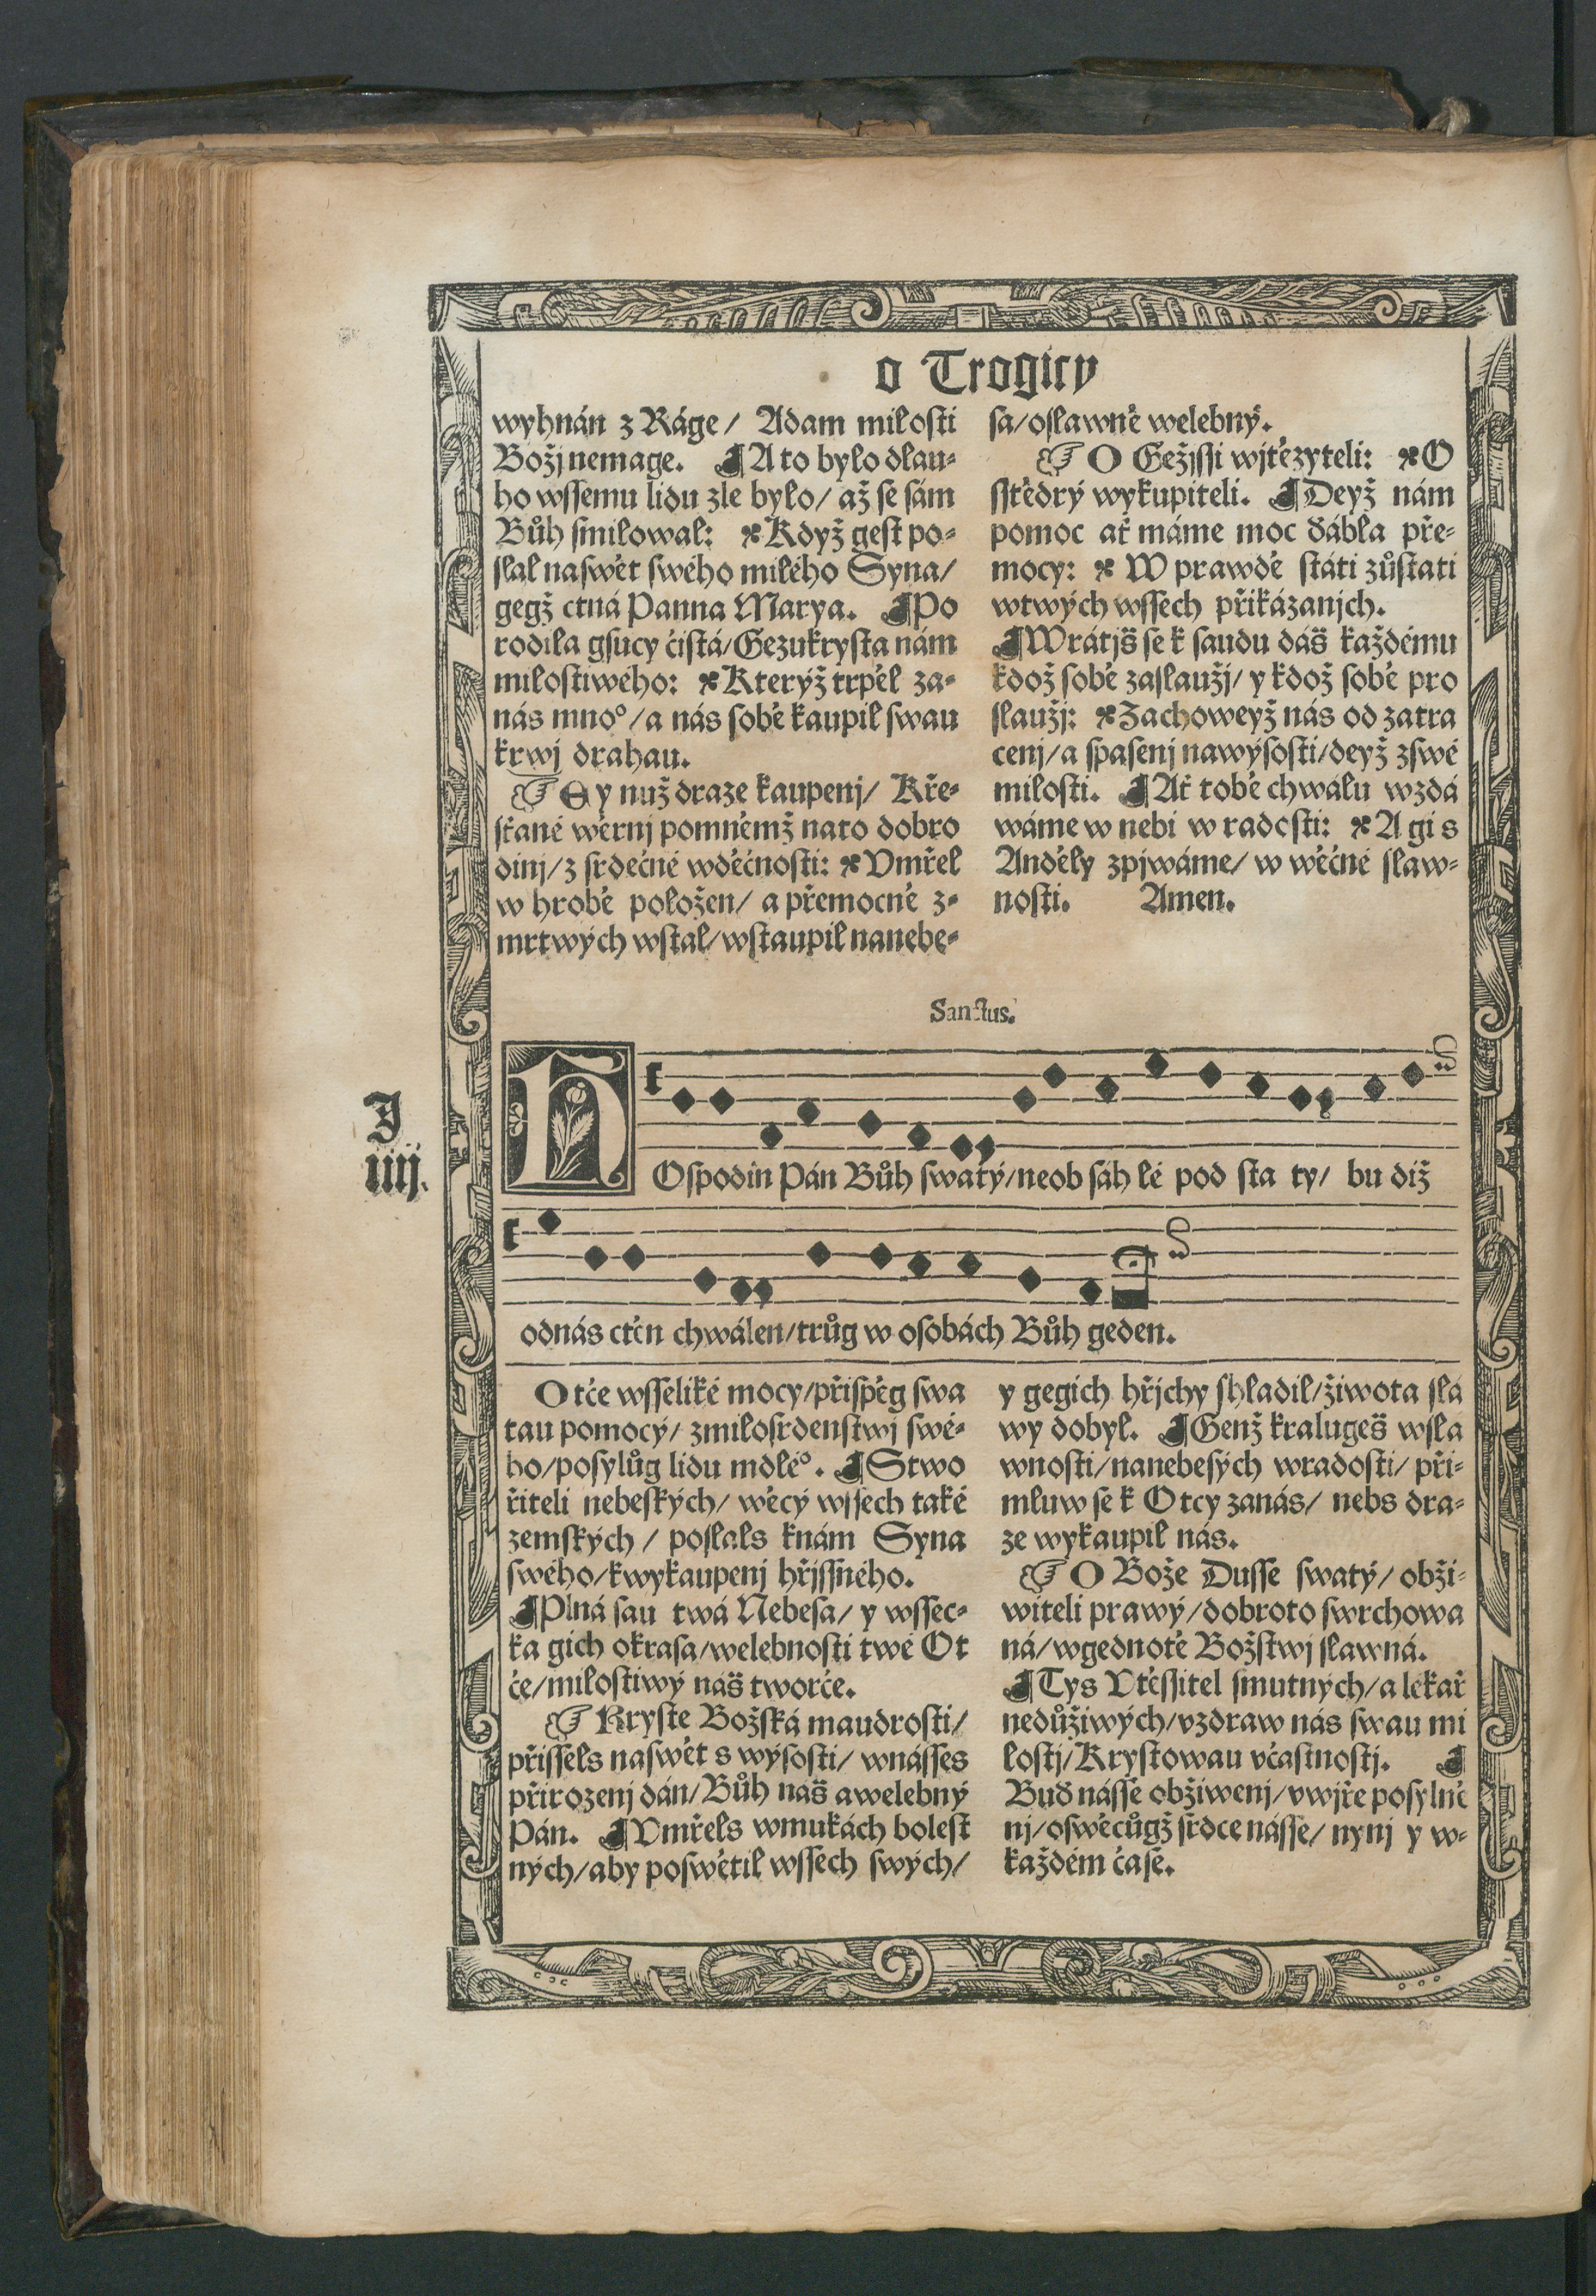 o Trogicy
wyhnán z Ráge/ Adam milosti
Božj nemage. ¶A to bylo dlau-
ho wssemu lidu zle bylo/ až se sám
Bůh smilowal: Když gest po-
slal naswět swého milého Syna/
gegž ctná Panna Marya. ¶Po
rodila gsúcy čistá/Gezukrysta nám
milostiwého: Kterýž trpěl za-
nás mno°/a nás sobě kaupil swau
krwj drahau.
☞ Ey nuž draze kaupenj/ Kře-
sťané wěrnj pomněmž nato dobro
dinj/z srdečné wděčnosti: Vmřel
w hrobě položen/ a přemocně z-
mrtwých wstal/wstaupil nanebe-
sa/oslawně welebný.
☞ O Gežjssi wjtězyteli: O
sstědrý wykupiteli. ¶Deyž nám
pomoc ať máme moc ďábla pře-
mocy: W prawdě státi zůstati
wtwých wssech přikázanjch.
¶Wrátjš se k saudu dáš každému
kdož sobě zaslaužj/ y kdož sobě pro
slaužj: Zachoweyž nás od zatra
cenj/a spasenj nawýsosti/deyž zswé
milosti. ¶Ať tobě chwálu wzdá
wáme w nebi w radosti: A gi s
Anděly zpjwáme/ w wěčné slaw-
nosti. Amen.
Sanctus.
J
iiij.
HOspodin Pán Bůh swatý/neob sáh lé pod sta ty/ bu diž
odnás ctěn chwálen/trůg w osobách Bůh geden.
Otče wsseliké mocy/přispěg swa
tau pomocý/ zmilosrdenstwj swé-
ho/posylůg lidu mdlé°. ¶Stwo
řiteli nebeských/ wěcý wssech také
zemských/ poslals knám Syna
swého/kwykaupenj hřjssného.
¶Plná sau twá Nebesa/ y wssec-
ka gich okrasa/welebnosti twé Ot
če/milostiwý náš tworče.
☞ Kryste Božská maudrosti/
přissels naswět s wýsosti/ wnásses
přirozenj dán/Bůh náš awelebný
Pán. ¶Vmřels wmukách bolest
ných/aby poswětil wssech swých/
y gegich hřjchy shladil/žiwota slá
wy dobyl. ¶Genž kralugeš wsla
wnosti/nanebesých wradosti/ při-
mluw se k Otcy zanás/ nebs dra-
ze wykaupil nás.
☞ O Bože Dusse swatý/ obži-
witeli prawý/dobroto swrchowa
ná/wgednotě Božstwj slawná.
¶Tys Vtěssitel smutných/a lékař
nedůžiwých/vzdraw nás swau mi
lostj/Krystowau včastnostj. ¶
Buď násse obžiwenj/vwjře posylně
nj/oswěcůgž srdce násse/ nynj y w-
každém čase.